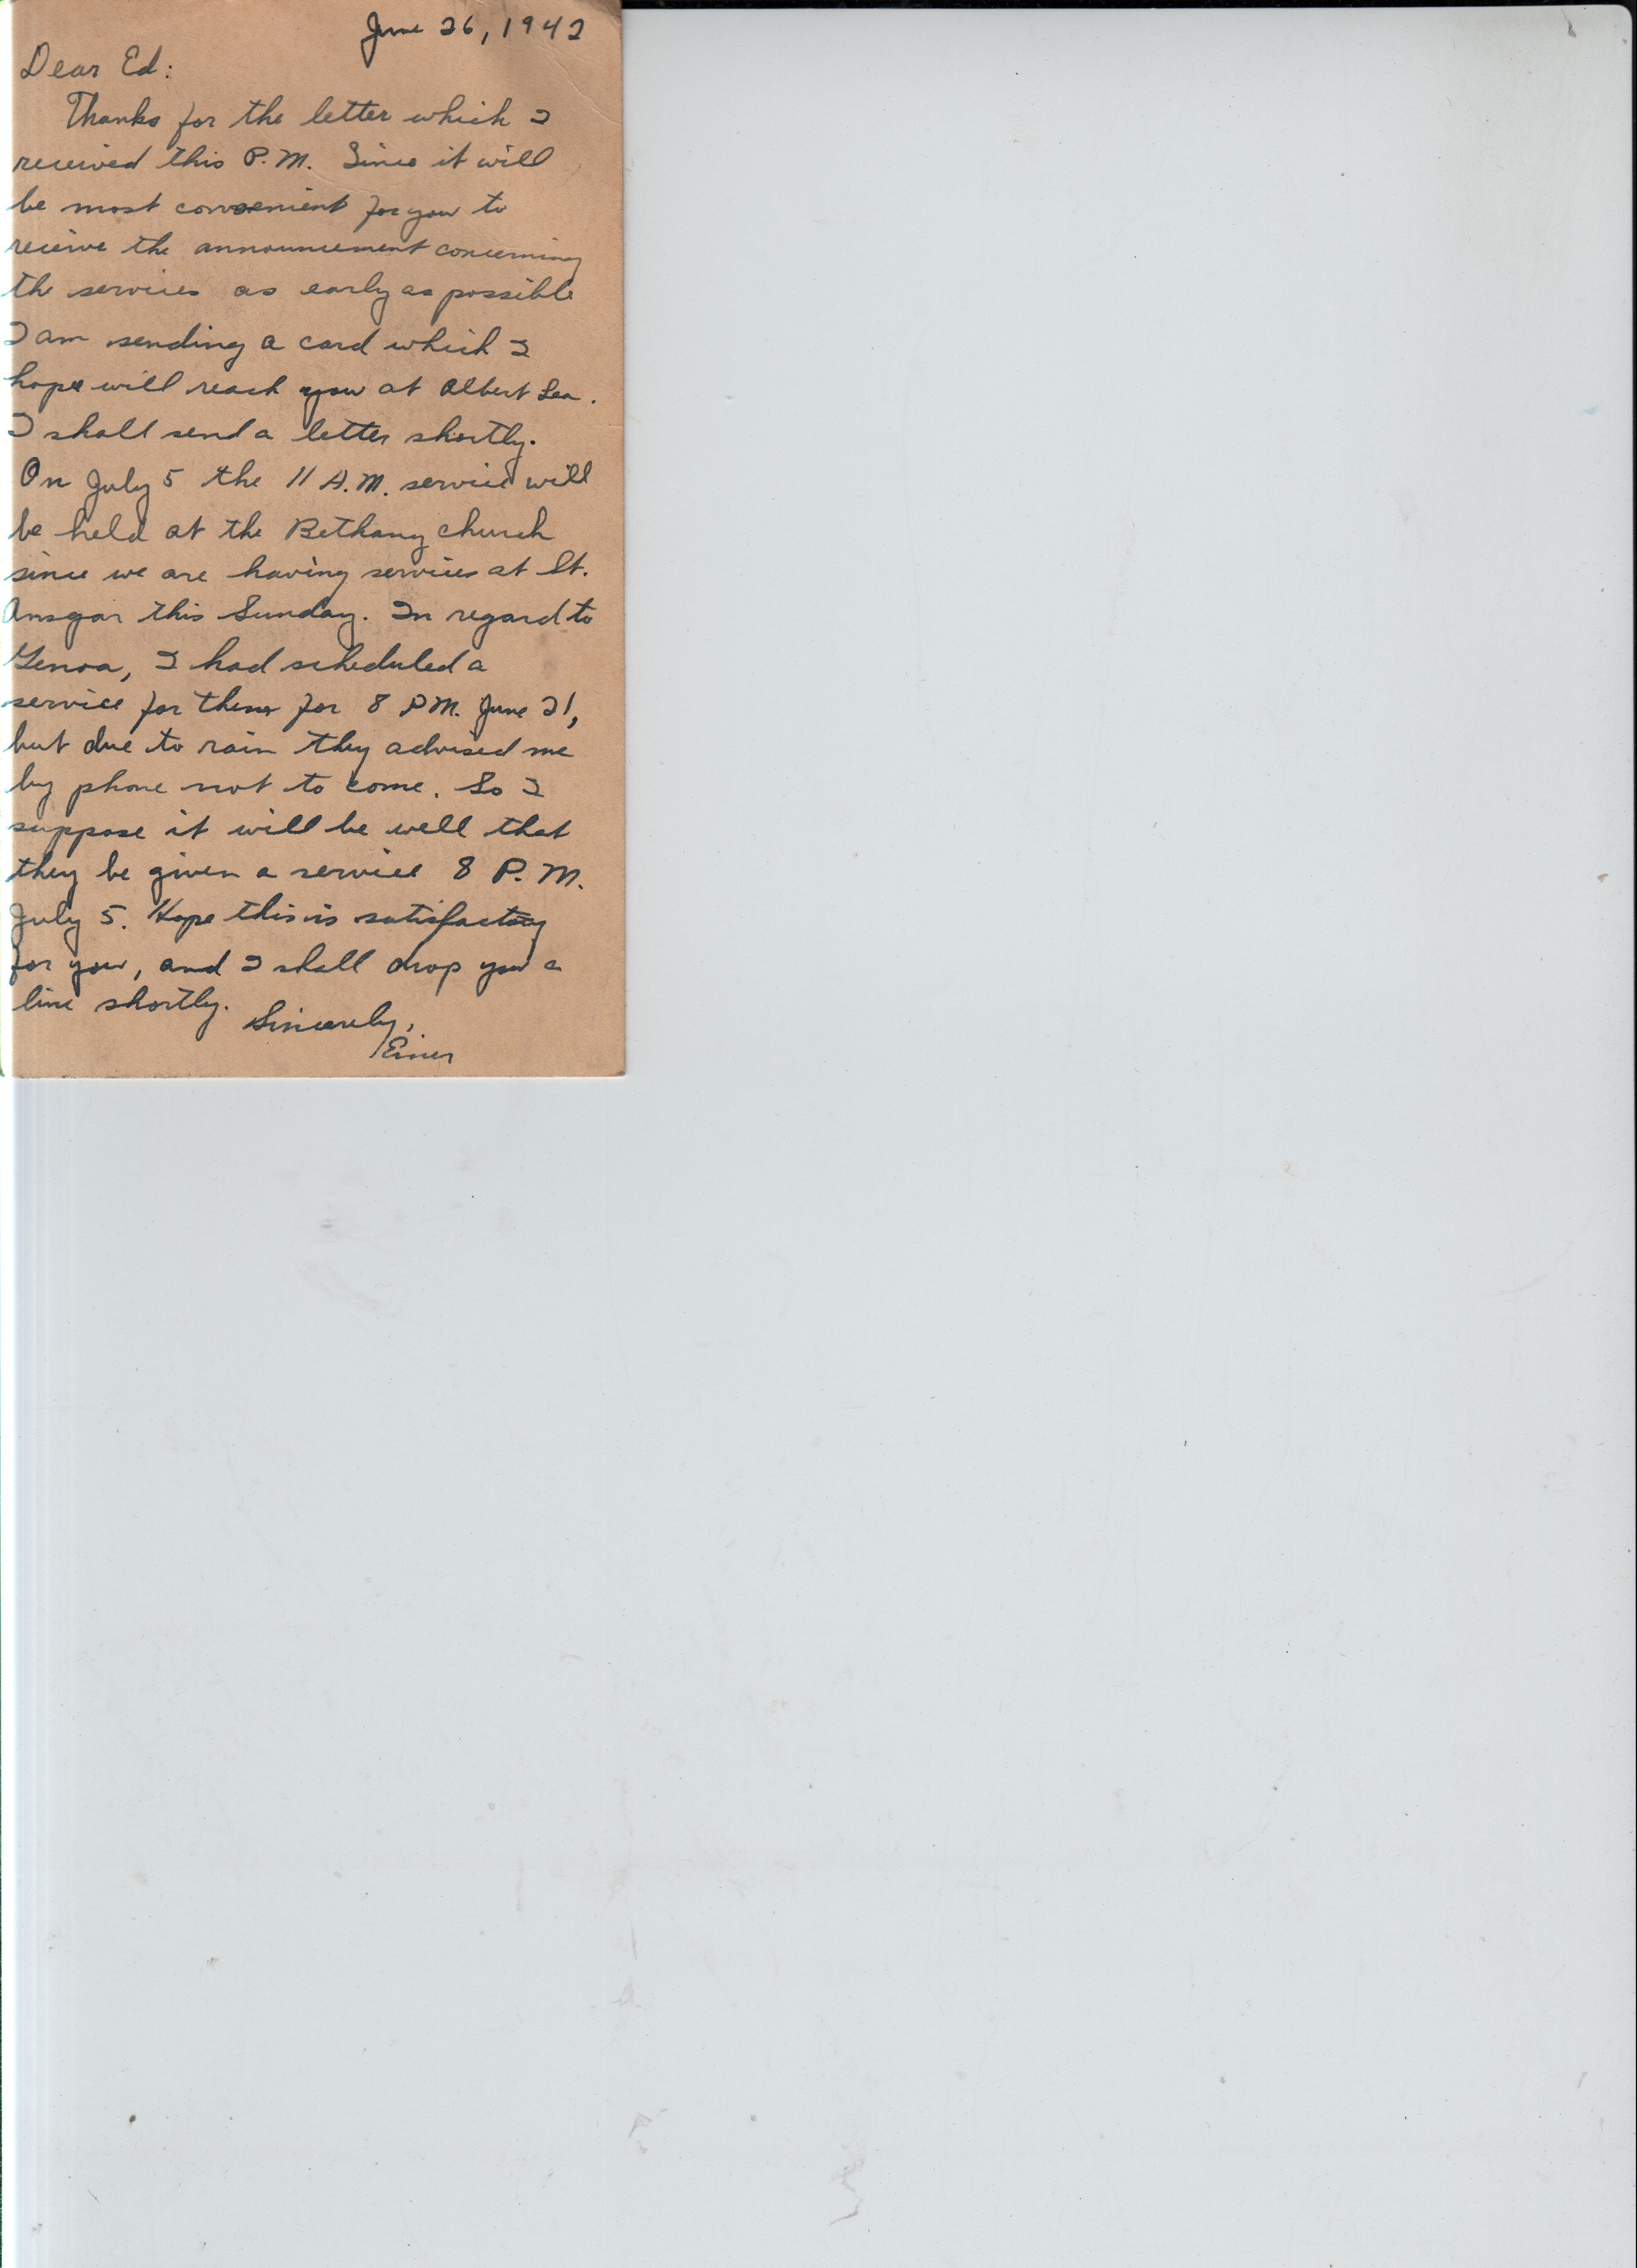 June 26, 1942
Dear Ed:
Thanks for the letter which I
received this P.M. Since it will
be most convenient for you to
receive the announcement concerning
the services as early as possible
I am sending a card which I
hope will reach you at Albert Lea.
I shall send a letter shortly.
On July 5 the 11 A.M. service will
be held at the Bethany church
since we are having services at St.
Ansgar this Sunday. In regard to
Genoa, I had scheduled a
service for them for 8 P.M. June 21,
but due to rain they advised me
by phone not to come. So I
suppose it will be well that
they be given a service 8 P.M.
July 5. Hope this is satisfactory
for you, and I shall drop you a
line shortly.
Sincerely,
Einer